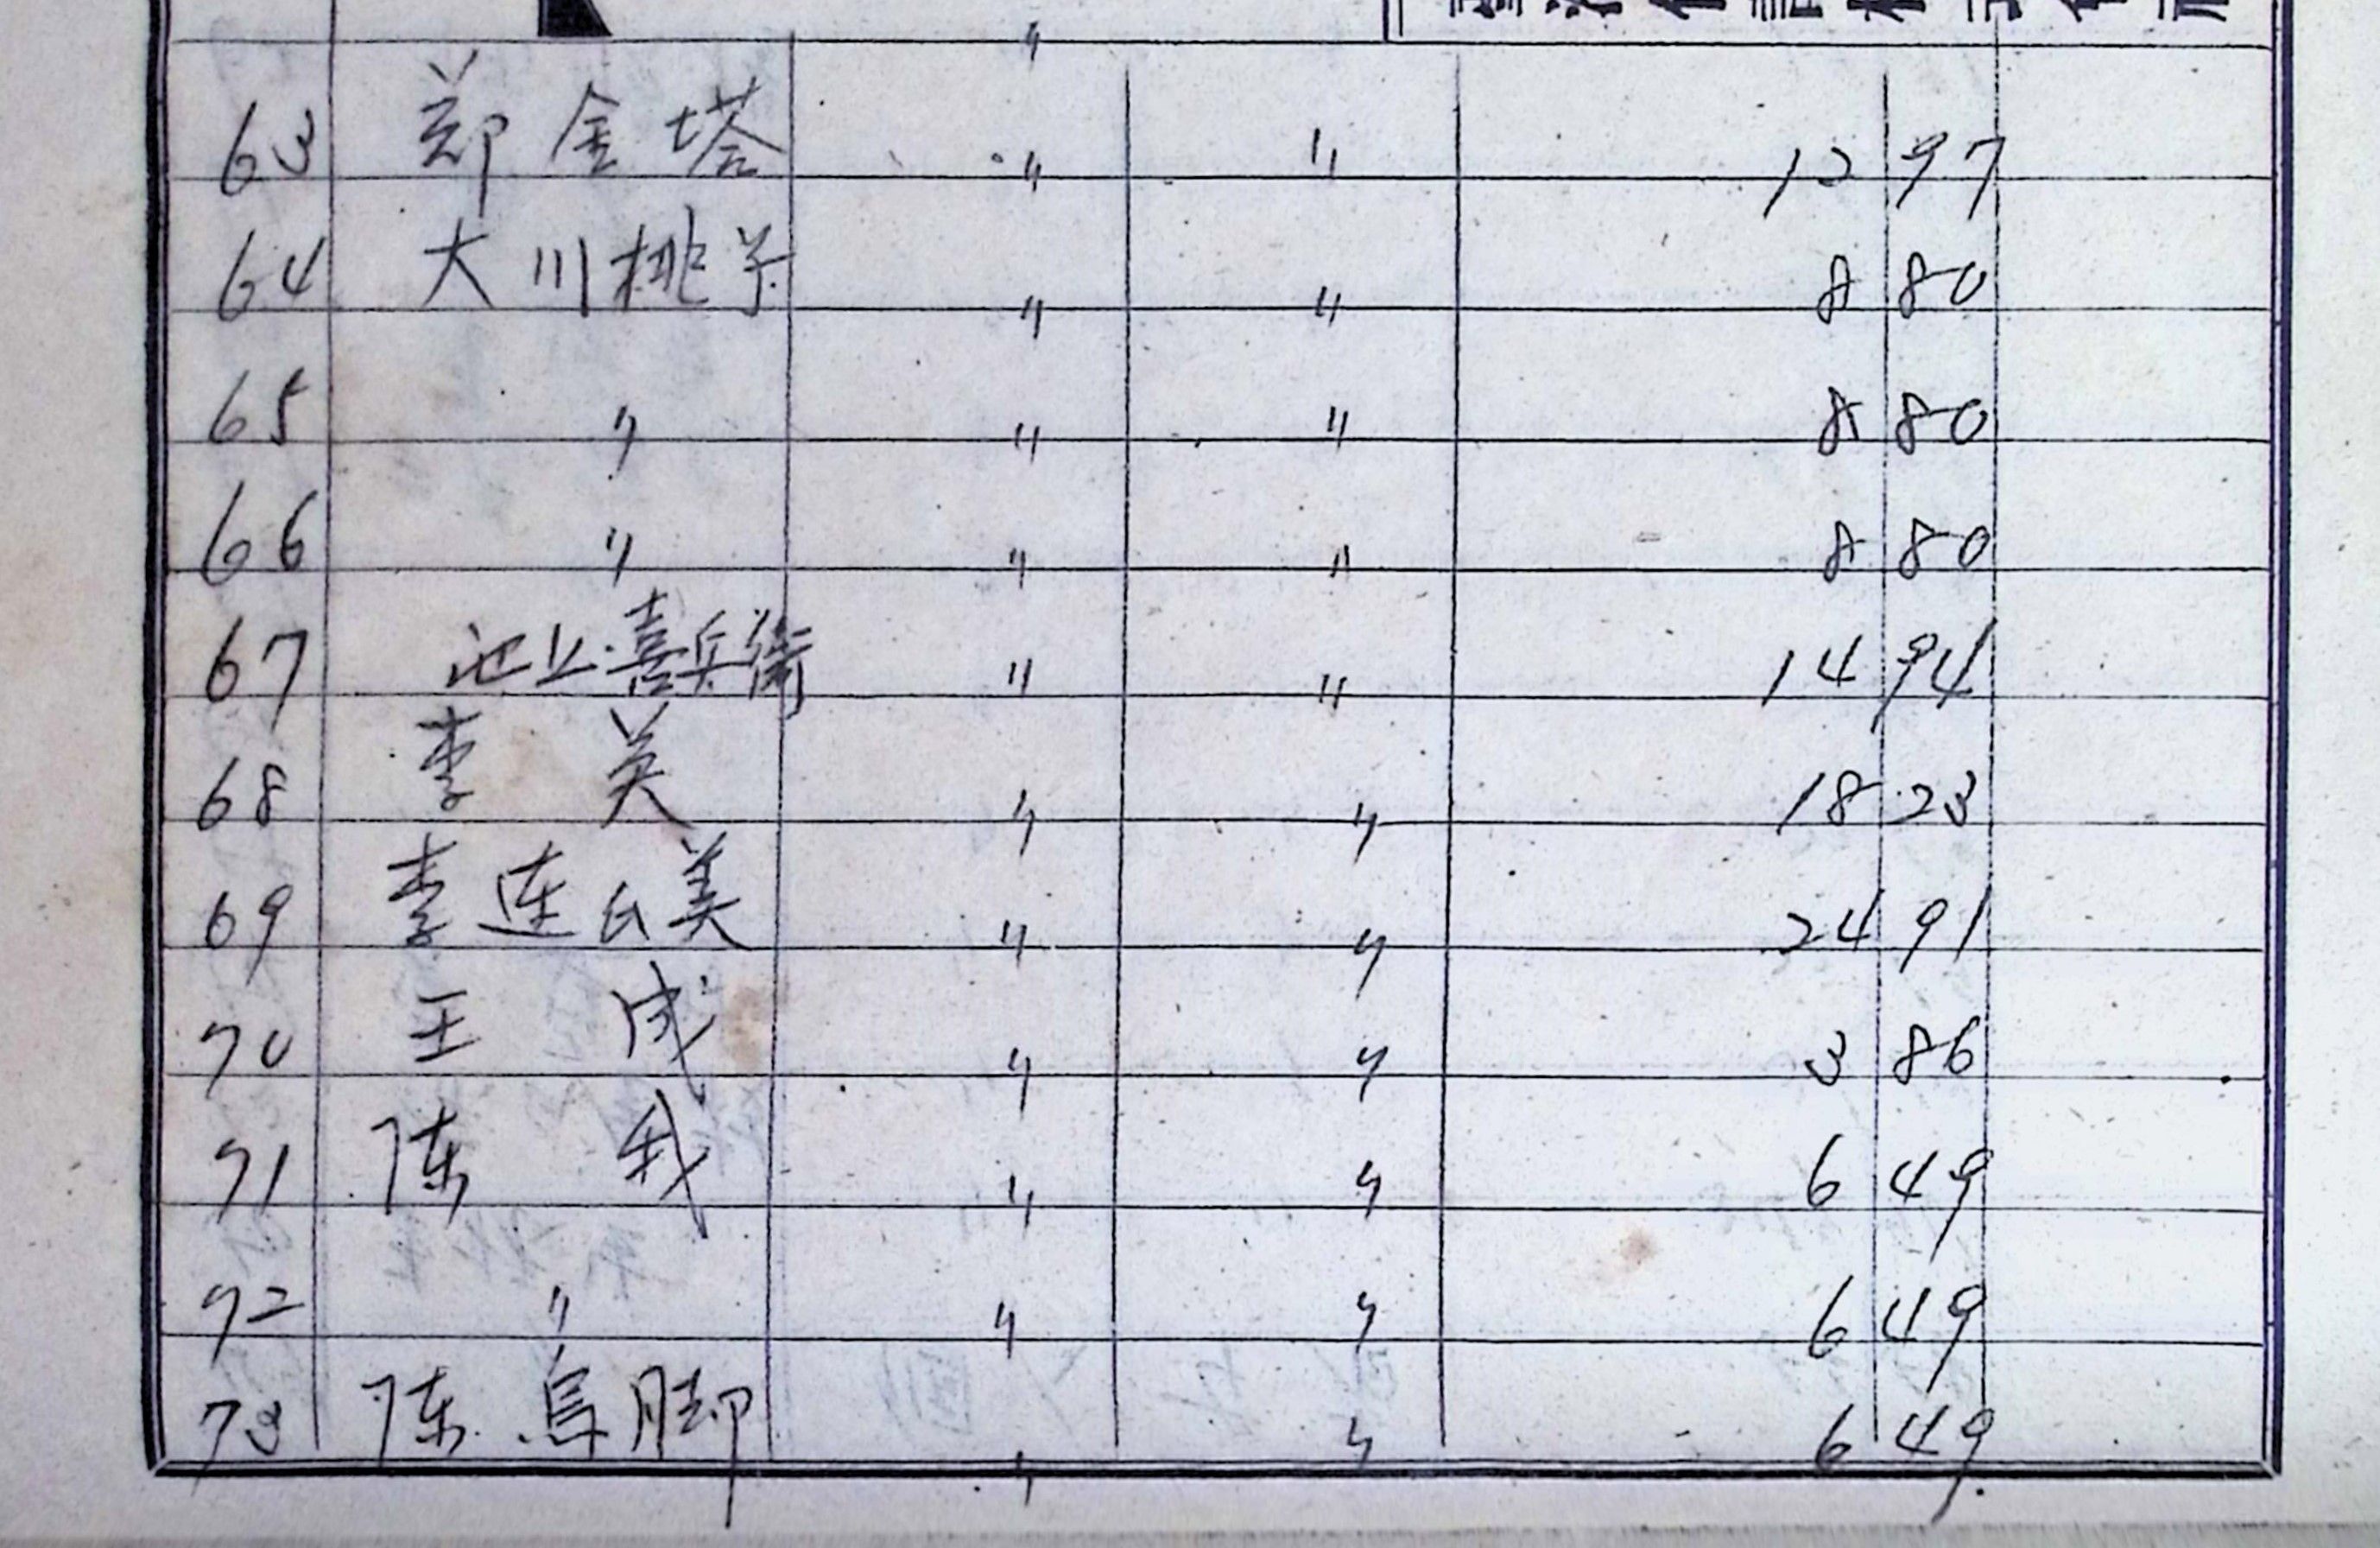 〃
63 郑金塔 〃 〃 12 97
64 大川桃子 〃 〃 8 80
65 〃 〃 〃 8 80
66 〃 〃 〃 8 80
67 池上喜兵衛 〃 〃 14 94
68 李 英 〃 〃 18 23
69 李连氏美 〃 〃 24 91
70 王 成 〃 〃 3 86
71 陈 我 〃 〃 6 49
72 〃 〃 〃 6 49
73 陈烏脚 〃 〃 6 49